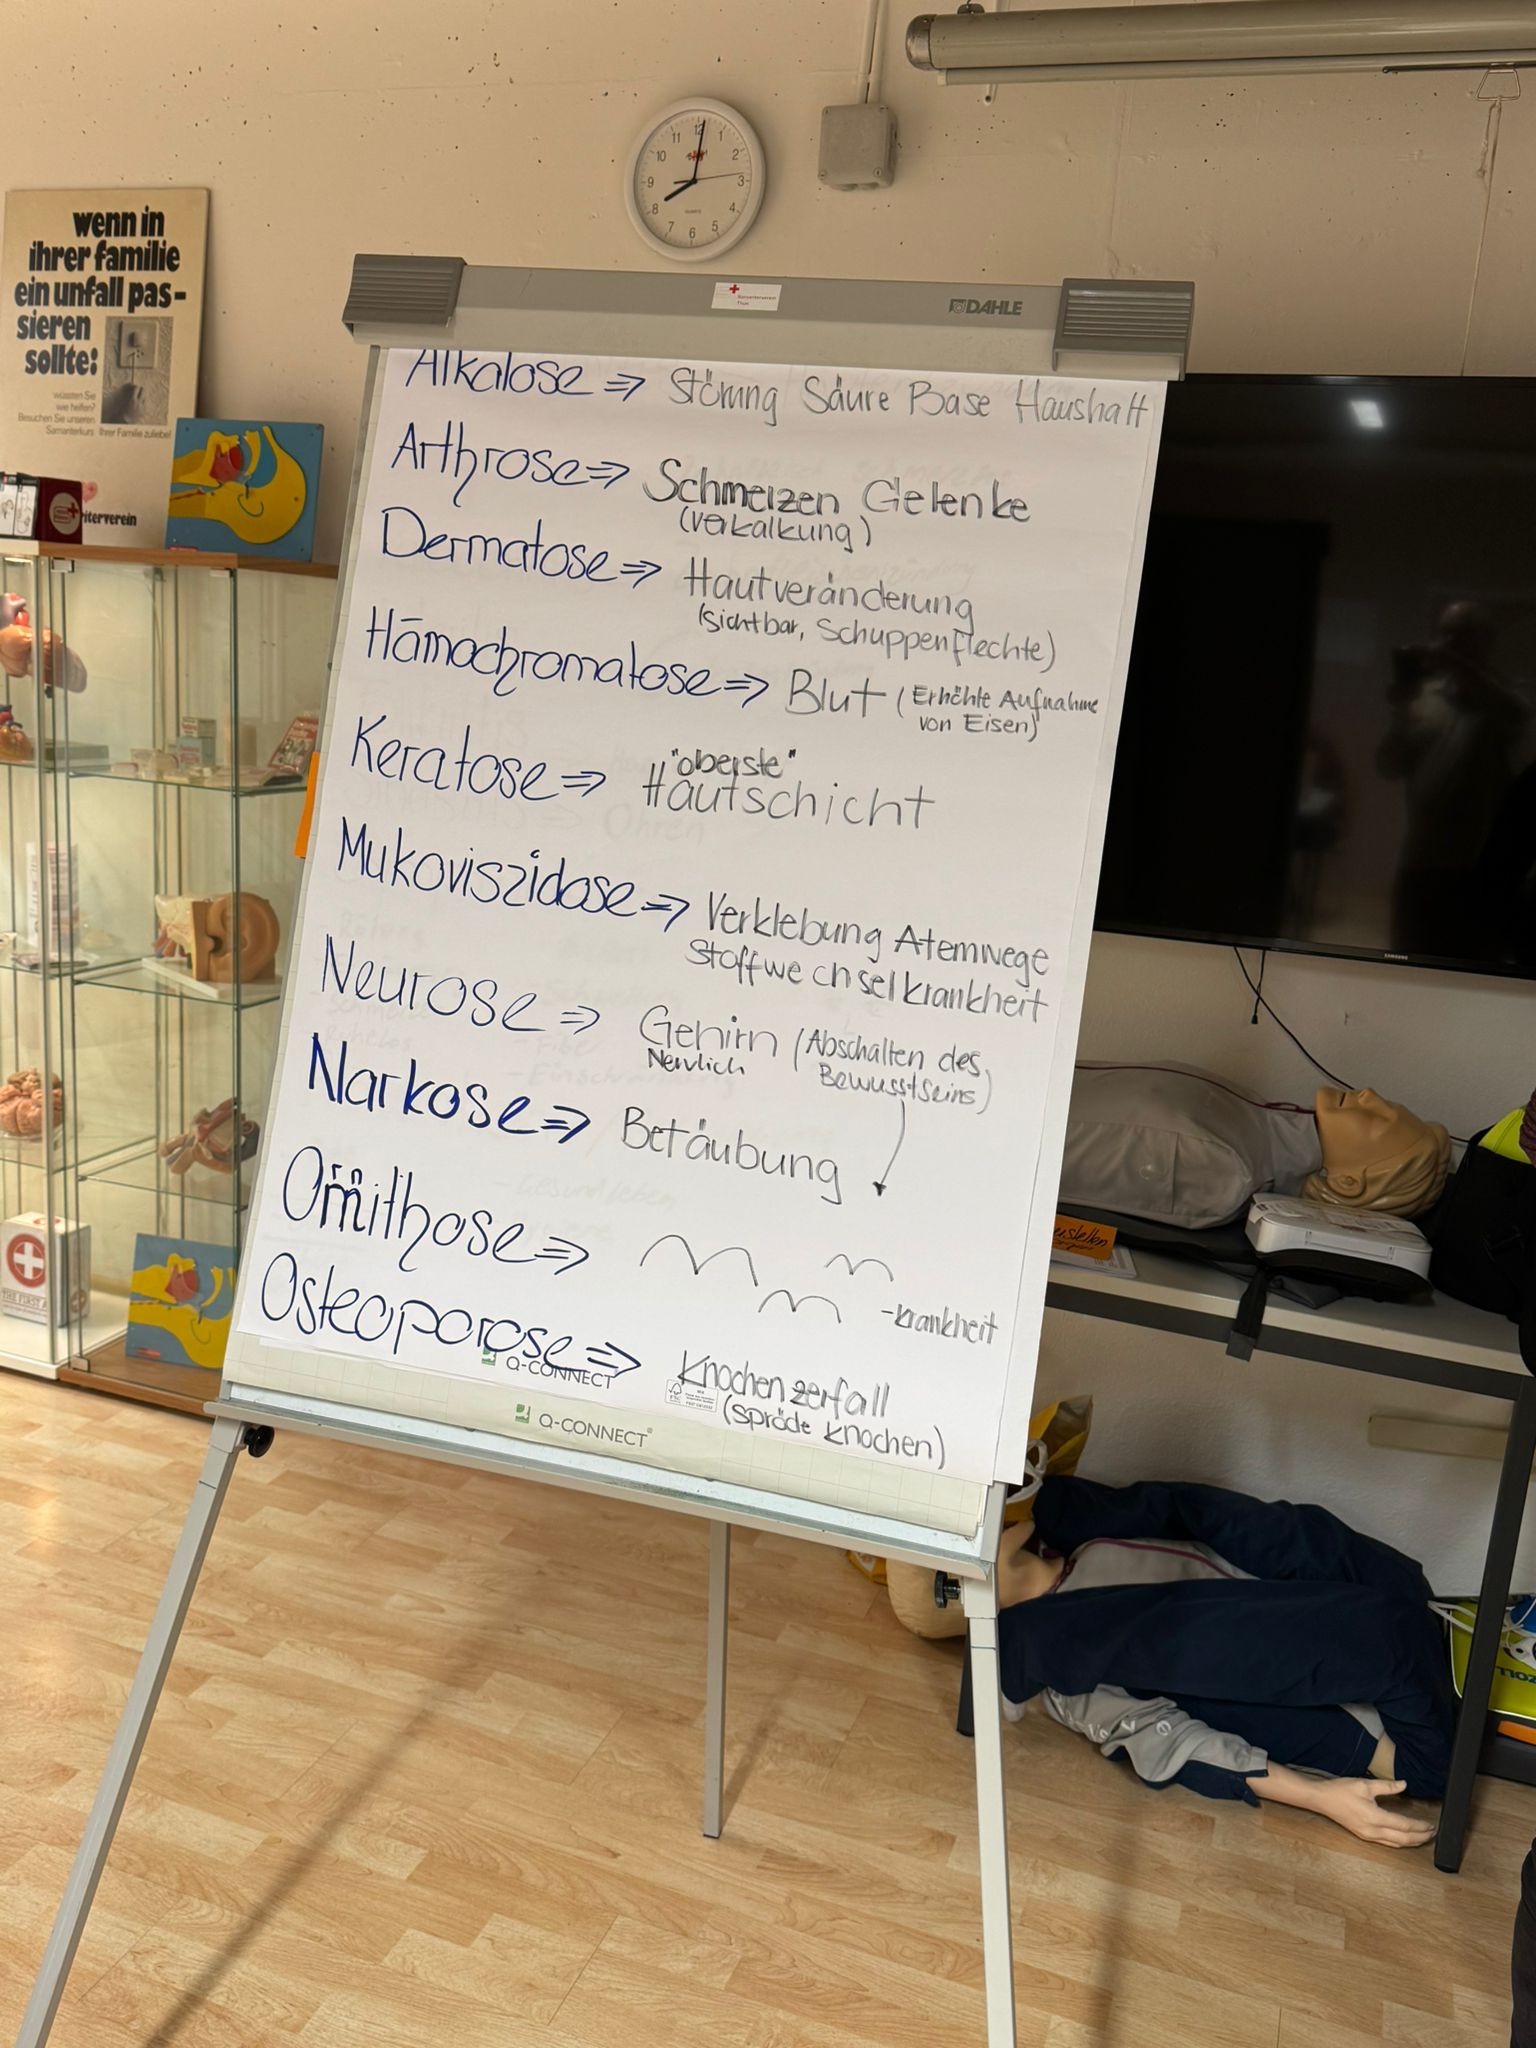 wenn in
ihrer familie
ein unfall pas-
sieren
sollte:
wüssten Sie
wie helfen?
Besuchen Sie unseren
Samariterkurs Ihrer Familie zuliebe!
riterverein
11 12 1
10 2
9 3
8 4
7 6 5
QUARTZ
Samariterverein
Thun
DAHLE
Alkalose => Störung Säure Base Haushalt
Arthrose => Schmerzen Gelenke
(verkalkung)
Dermatose => Hautveränderung
(Sichtbar, Schuppenflechte)
Hämochromatose => Blut (Erhöhte Aufnahme
von Eisen)
"oberste"
Keratose => Hautschicht
Mukoviszidose => Verklebung Atemwege
Stoffwechselkrankheit
Neurose => Gehirn (Abschalten des
Nervlich Bewusstseins)
Narkose => Betäubung
Ornithose => -krankheit
Osteoporose => Knochenzerfall
(spröde Knochen)
Q-CONNECT
FSC
Q-CONNECT
SAMSUNG
THE FIRST A
ZOLL